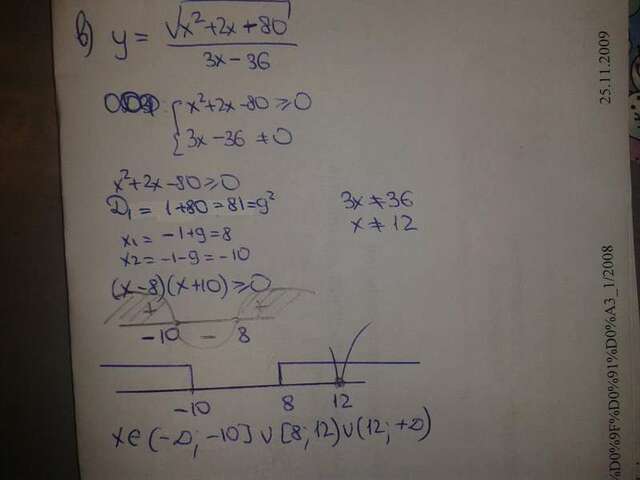 в) y = √x²+2x+80 / 3x-36
ООЗ: { x²+2x-80 ≥ 0
3x-36 ≠ 0
x²+2x-80 ≥ 0
D₁ = 1+80=81=9²
x₁= -1+9=8
x₂= -1-9= -10
(x-8)(x+10) ≥ 0
3x ≠ 36
x ≠ 12
+ - +
-10 8
-10 8 12
x∈(-∞; -10] ∪ [8; 12) ∪ (12; +∞)
25.11.2009
%D0%9F%D0%91%D0%A3_1/2008